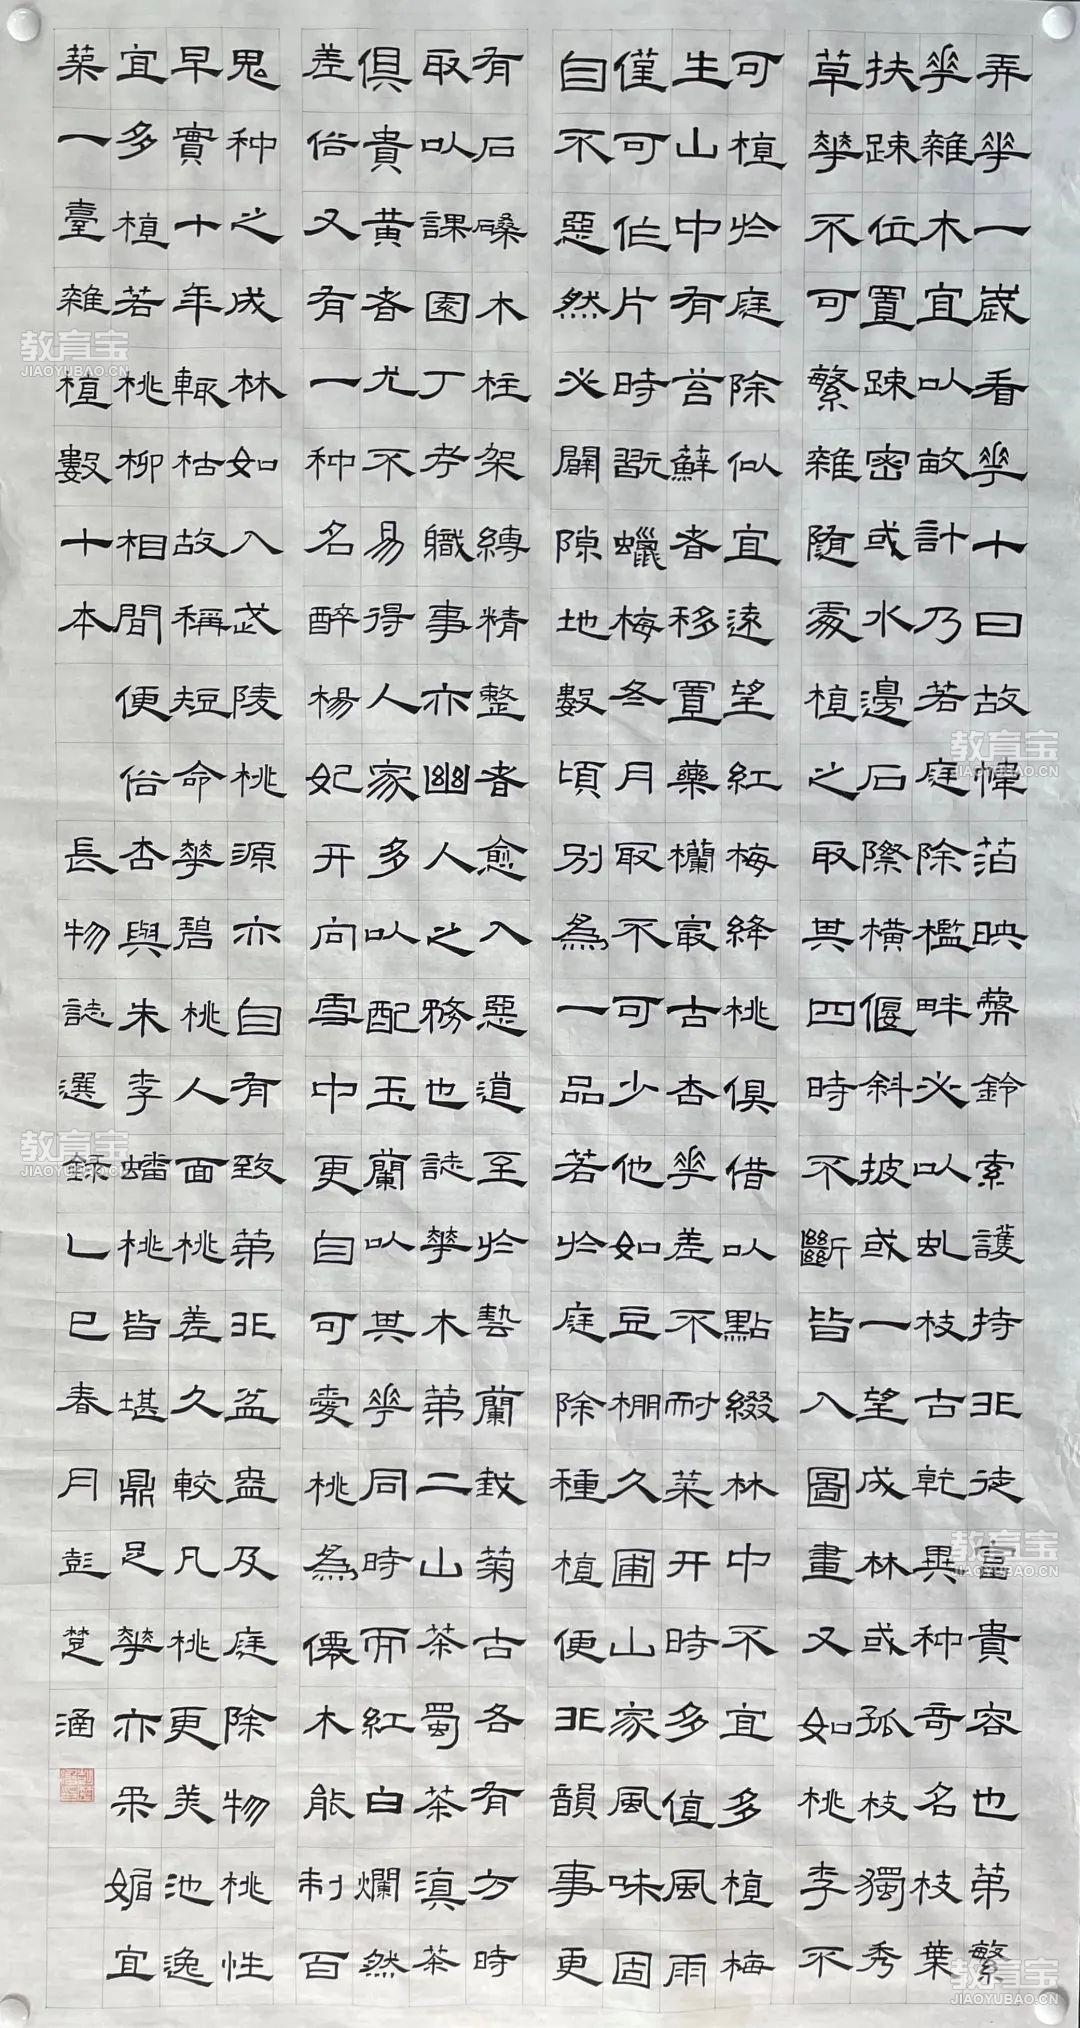 弄華一歲看華十日故幃箔映蔽鈴索護持非徒富貴容也第繁
華雜木宜以畝計乃若庭除檻畔必以虬枝古乾異种奇名枝葉
扶疎位置疎密或水邊石際橫偃斜披或一望成林或孤枝獨秀
草華不可繁雜随處植之取其四時不斷皆入圖畫又如桃李不
可植於庭除似宜遠望紅梅絳桃俱借以點綴林中不宜多植梅
生山中有苔蘚者移置藥欄最古杏華差不耐菜开時多值風雨
僅可作片時翫蠟梅冬月取不可少他如豆棚久圃山家風味固
自不惡然必闢隙地數頃別為一品若於庭除種植便非韻事更
有石磉木柱架縛精整者愈入惡道至於藝蘭栽菊古各有方時
取以課園丁考職事亦幽人之務也誌華木第二山茶蜀茶滇茶
俱貴黃者尤不易得人家多以配玉蘭以其華同時而紅白爛然
差俗又有一种名醉楊妃开向雪中更自可愛桃為僊木能制百
鬼种之成林如入武陵桃源亦自有致第非盆盎及庭除物桃性
早實十年輒枯故稱短命華碧桃人面桃差久較凡桃更美池逸
宜多植若桃柳相間便俗杏與朱李蟠桃皆堪鼎足華亦柔媚宜
築一臺雜植數十本
長物誌選錄乙巳春月彭楚涵
教育宝
JIAOYUBAO.CN
教育宝
JIAOYUBAO.CN
教育宝
JIAOYUBAO.CN
教育宝
JIAOYUBAO.CN
教育宝
JIAOYUBAO.CN